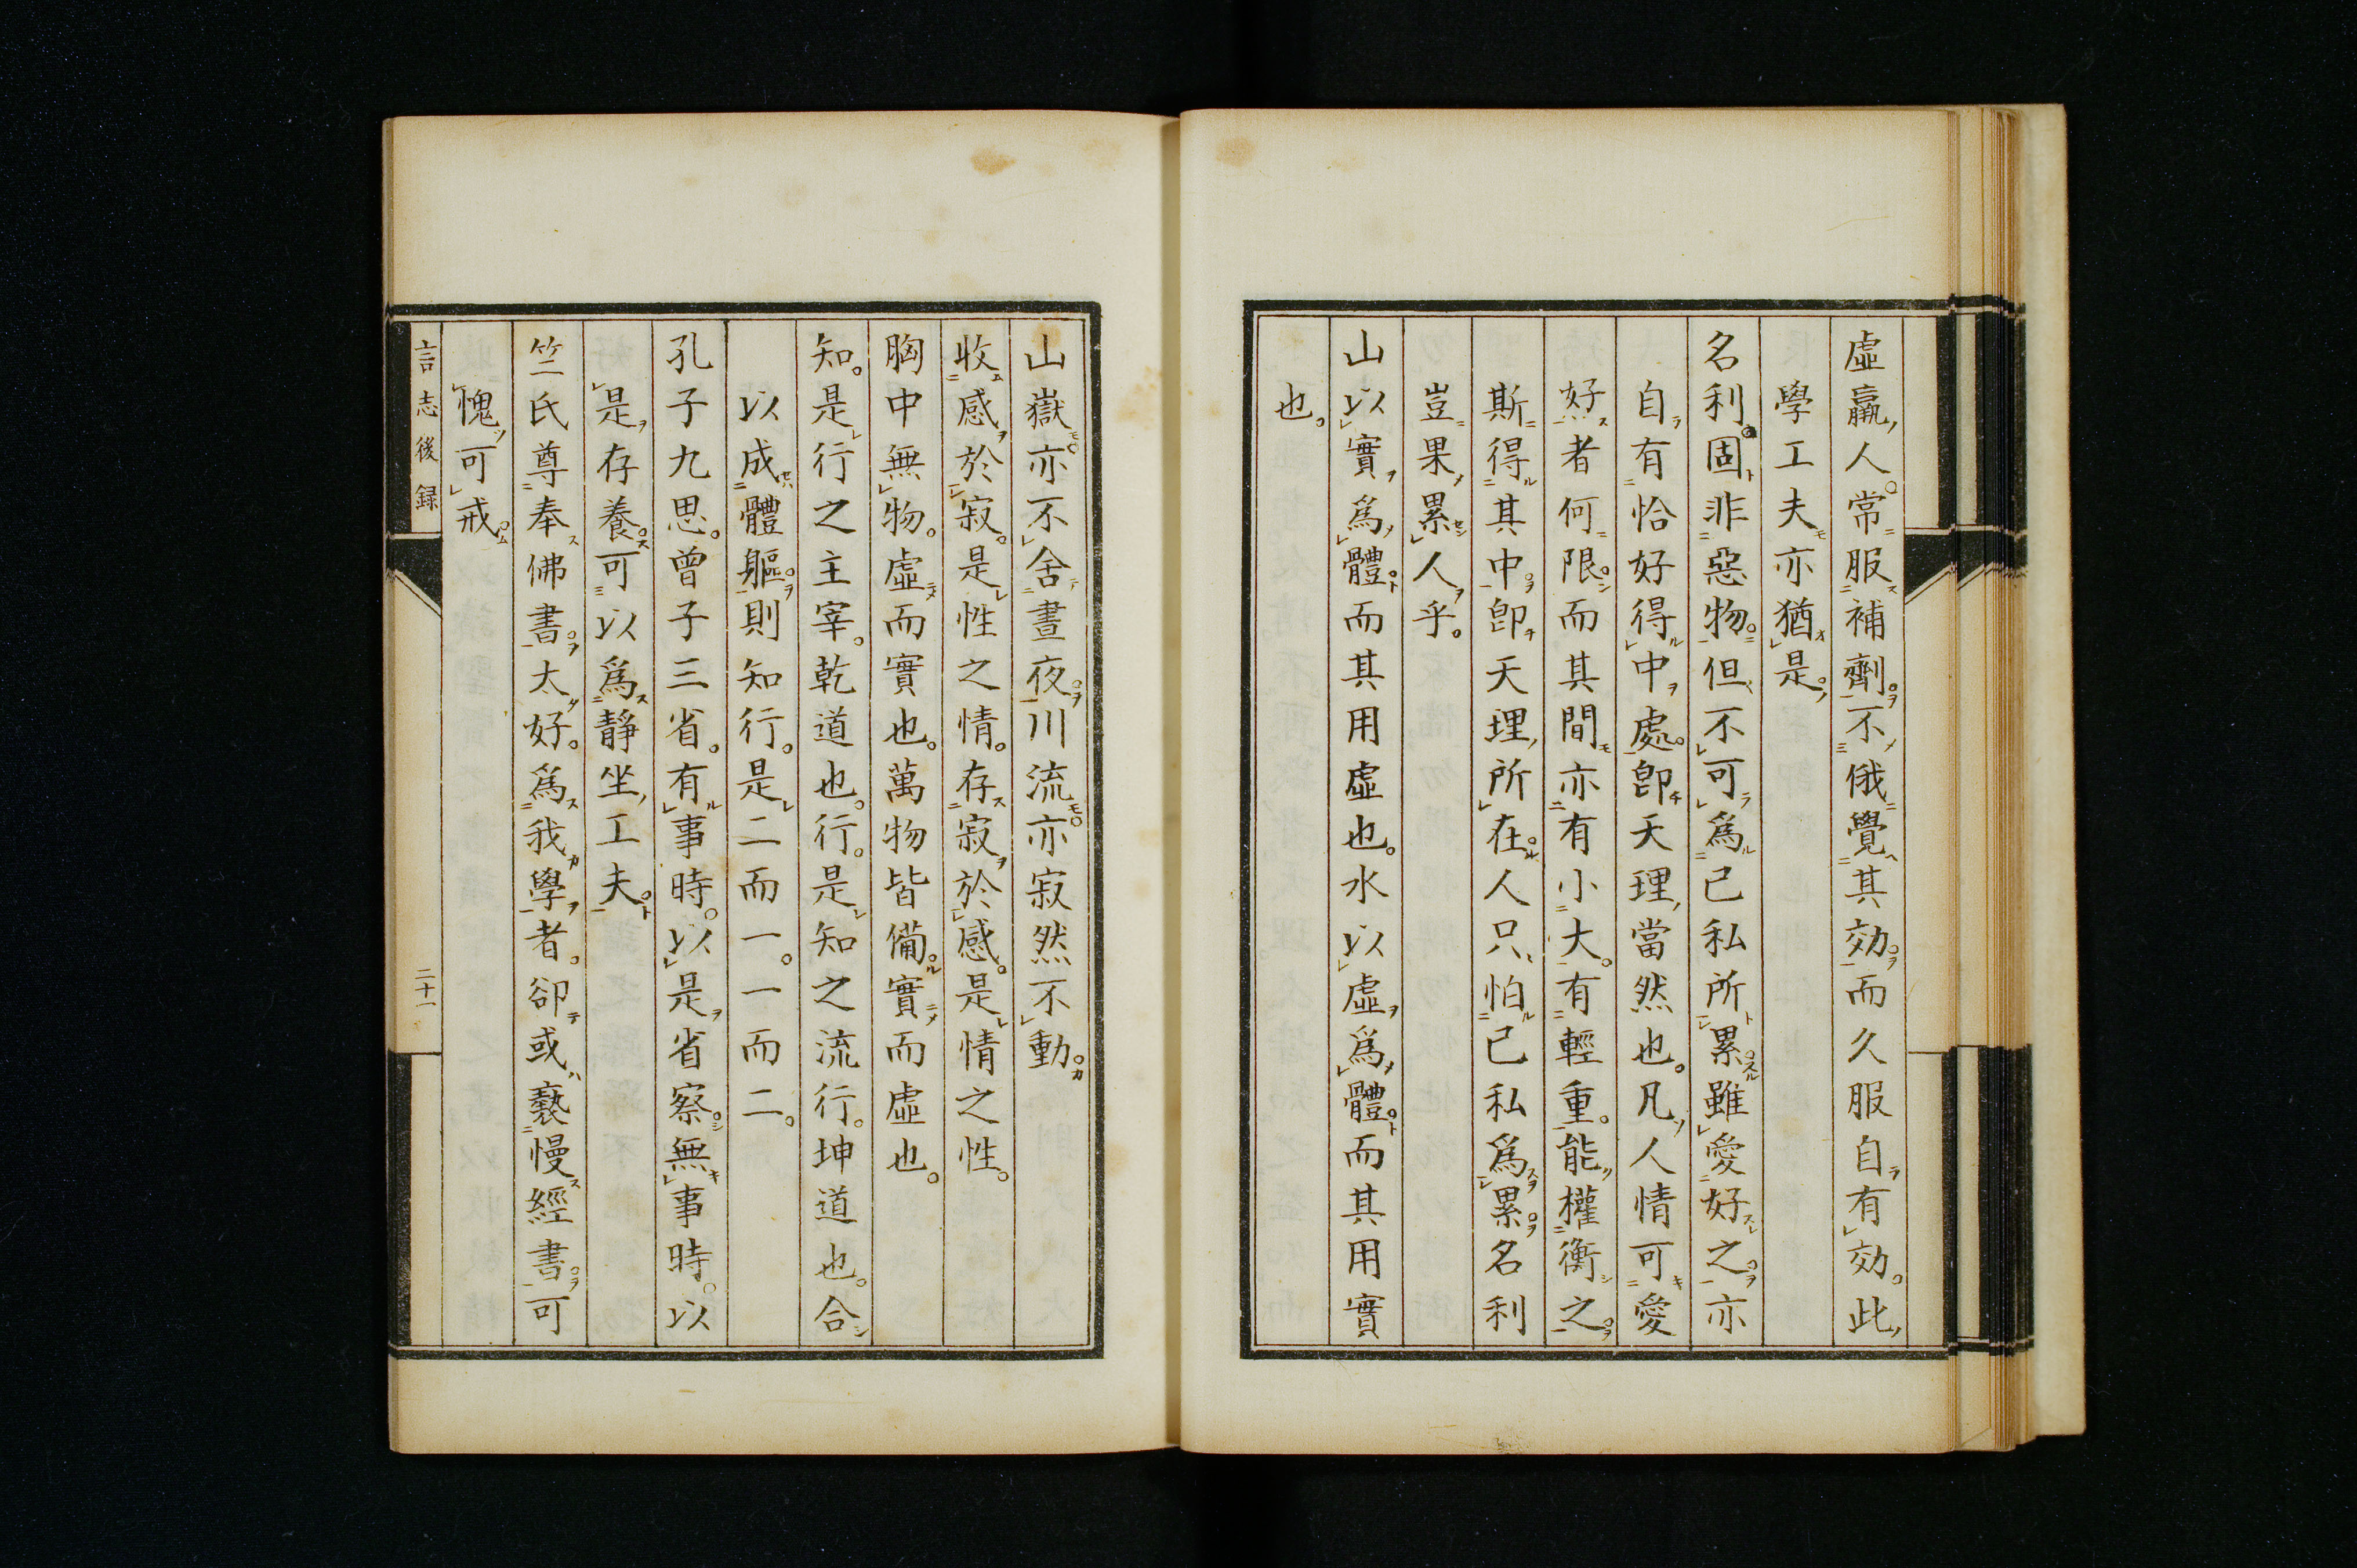 虛羸人常服補劑不俄覺其効而久服自有効。此
學工夫亦猶是。
名利固非惡物。但不可爲己私所累。雖愛好之。亦
自有恰好得中處。卽天理當然也。凡人情可愛
好者何限。而其間亦有小大。有輕重。能權衡之。
斯得其中。卽天理所在。人只怕己私爲累。名利
豈果累人乎。
山以實爲體。而其用虛也。水以虛爲體。而其用實
也。
山嶽亦不舍晝夜。川流亦寂然不動。
收感於寂。是性之情。存寂於感。是情之性。
胸中無物。虛而實也。萬物皆備。實而虛也。
知。是行之主宰。乾道也。行。是知之流行。坤道也。合
以成體軀。則知行。是二而一。一而二。
孔子九思。曾子三省。有事時。以是省察。無事時。以
是存養。可以爲靜坐工夫。
竺氏尊奉佛書。太好。爲我學者。卻或褻慢經書。可
愧可戒。
言志後録
二十一